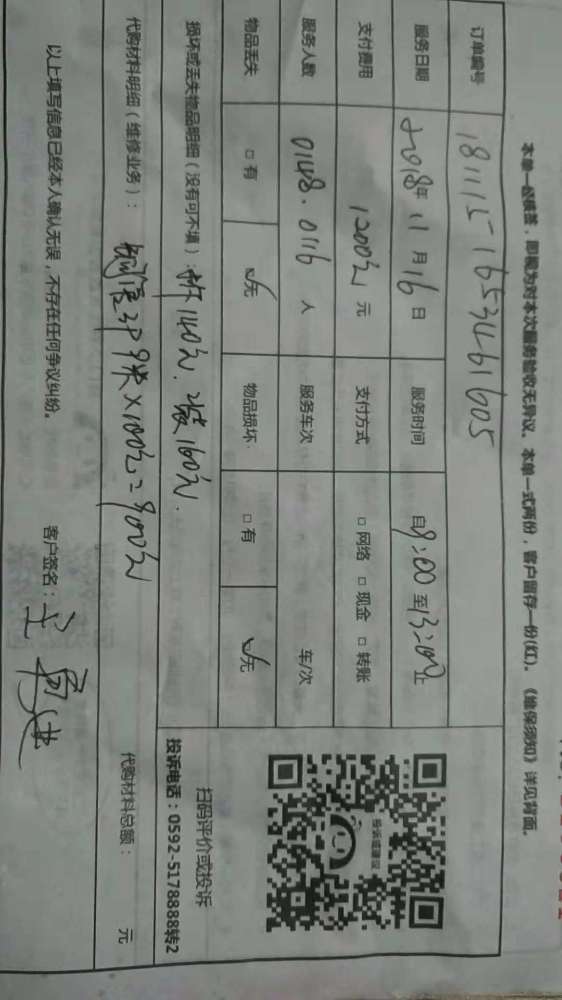 本单一经签署，即视为对本次服务验收无异议。本单一式两份，客户留存一份(红)。《维保须知》详见背面。
订单编号 181115165346 1605
服务日期 2018年 11 月 16 日 服务时间 自9:00至13:00止
支付费用 1200元 元 支付方式 □ 网络 □ 现金 □ 转账
服务人数 0148.0116 人 服务车次 车/次
物品丢失 □ 有 ☑无 物品损坏 □ 有 ☑无
投诉或建议
扫码评价或投诉
投诉电话：0592-5178888转2
损坏或丢失物品明细（没有可不填）：拆140元. 装160元.
代购材料明细（维修业务）： 9米×100元=900元 代购材料总额： 元
以上填写信息已经本人确认无误，不存在任何争议纠纷。 客户签名：